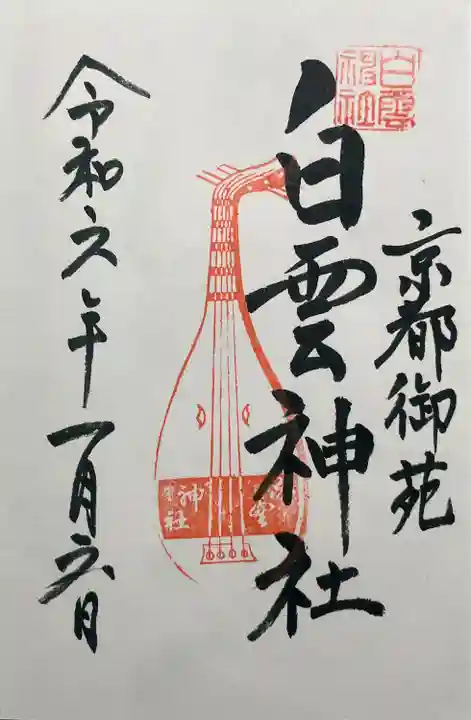 京都御苑
白雲神社
白雲神社
白雲神社
令和六年一月六日